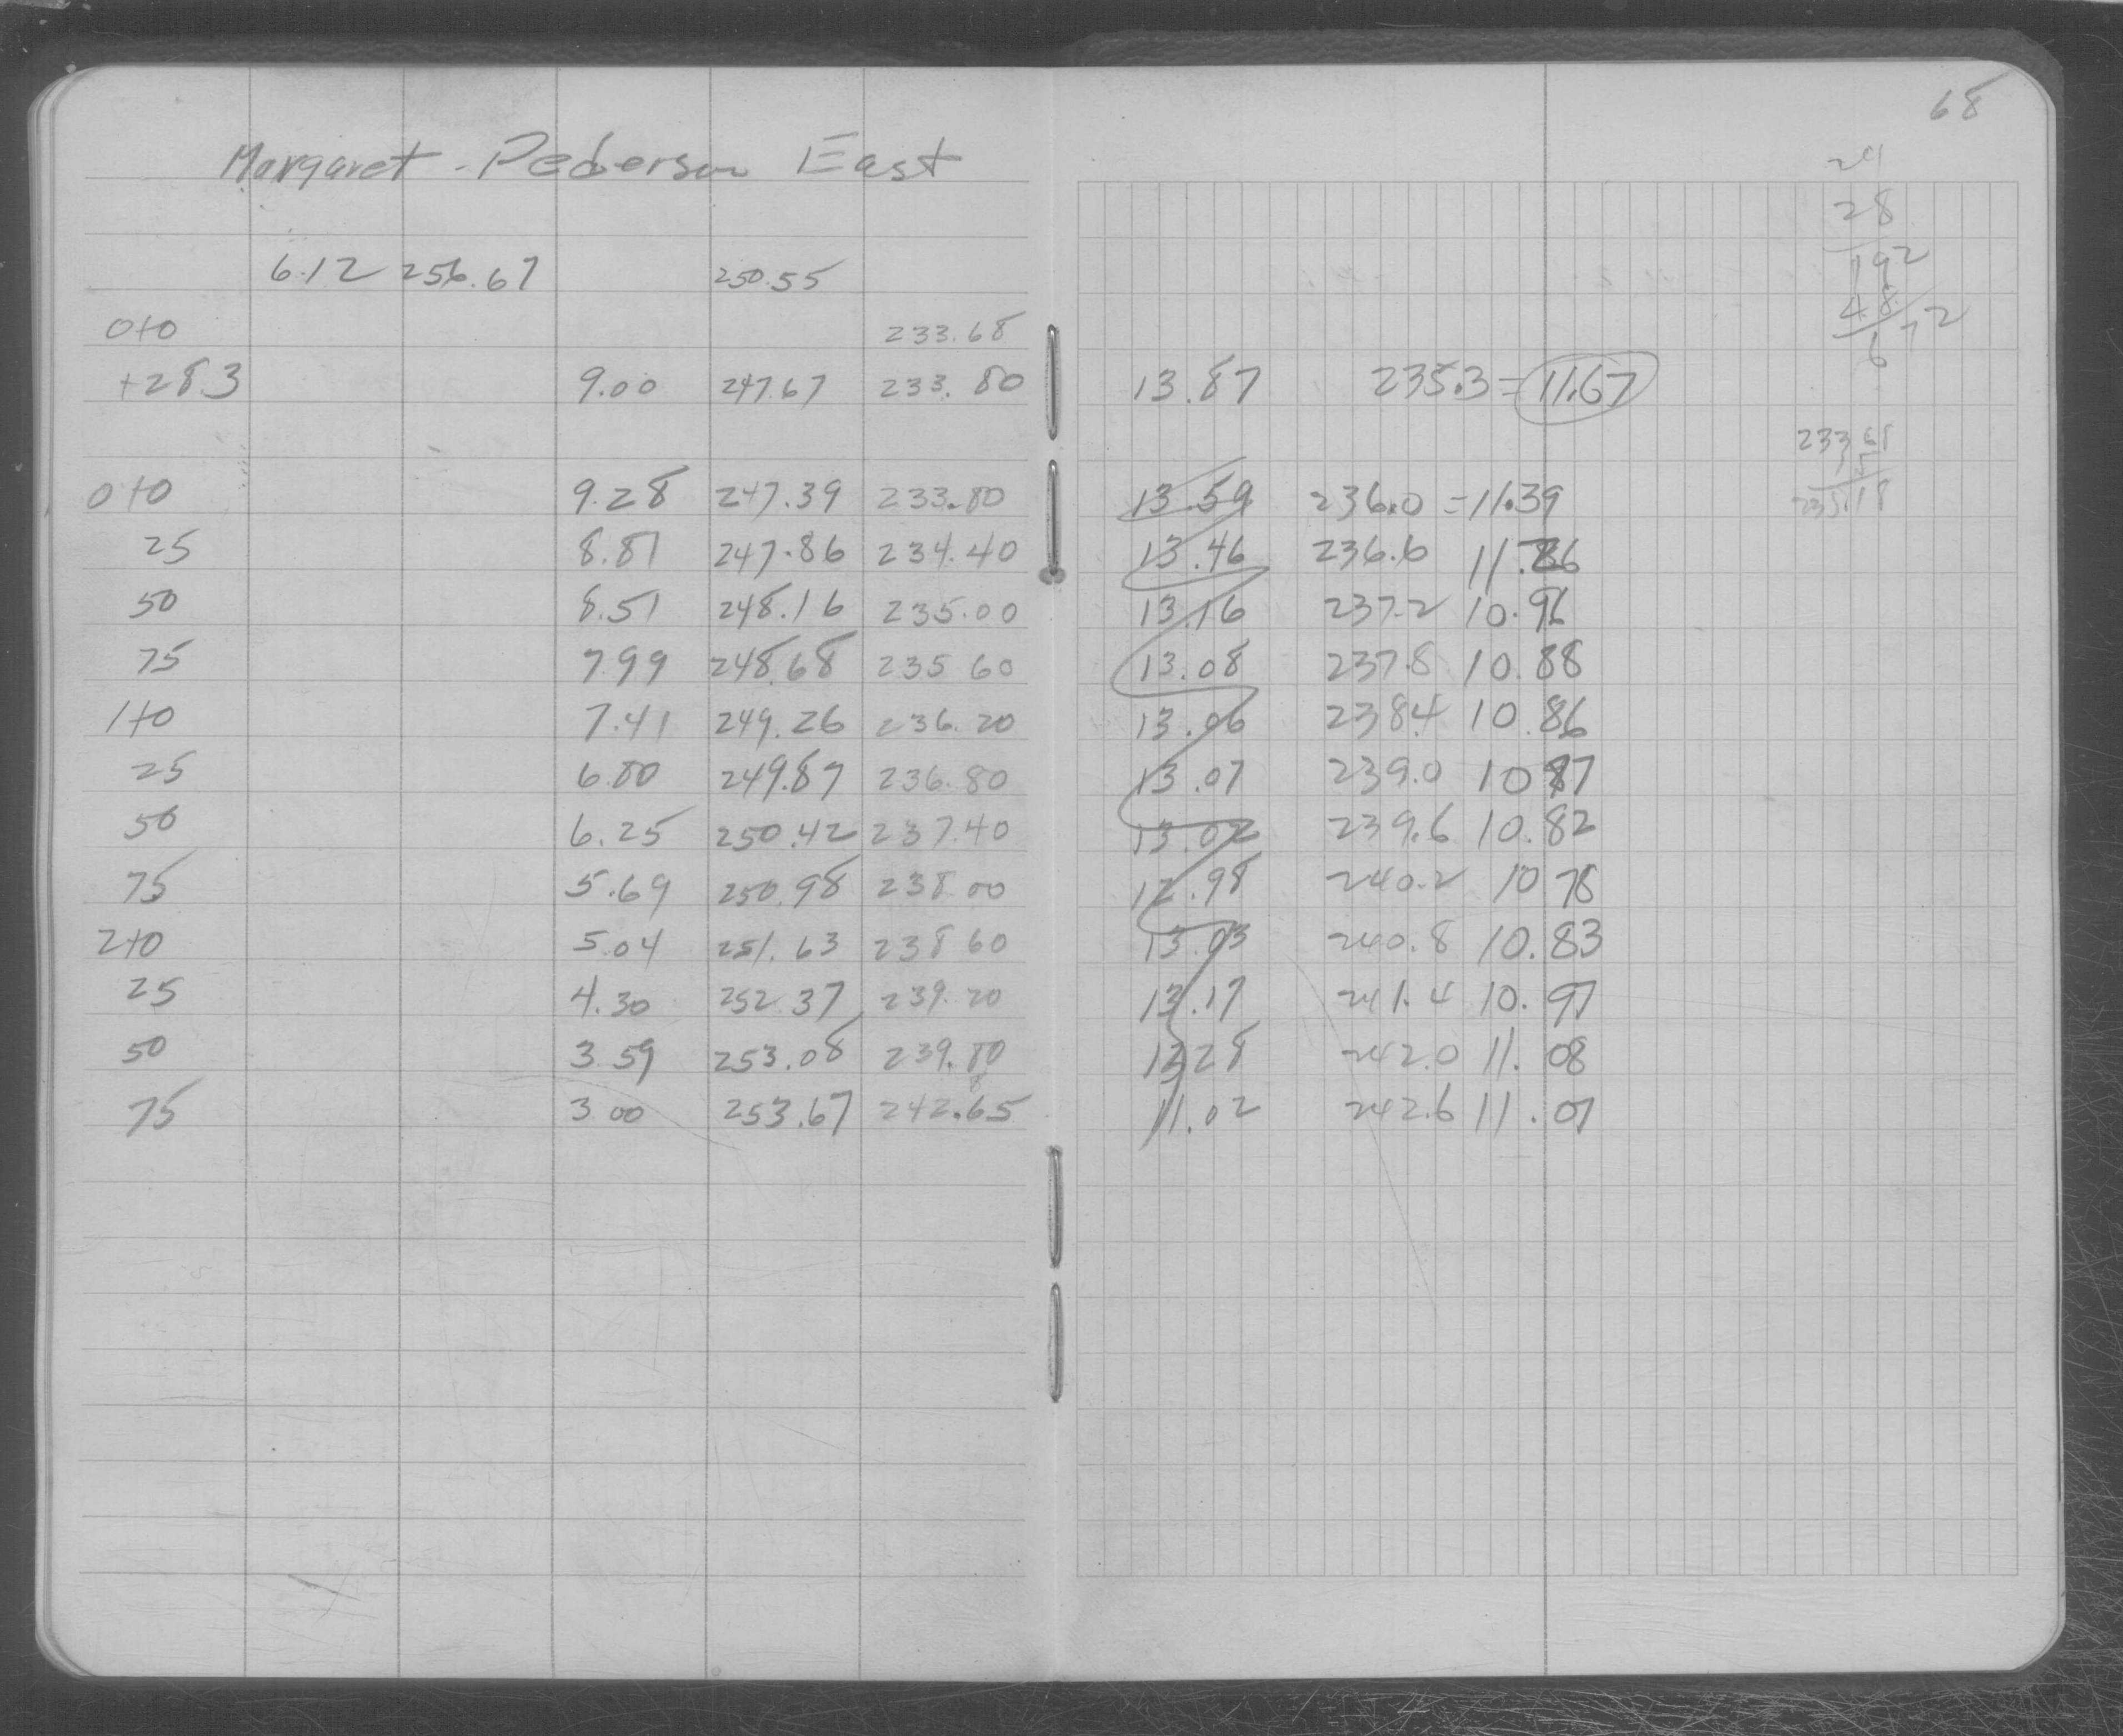 68
Margaret - Pederson East
24
28
192
48
672
6.12 256.67 250.55
0+0 233.68
+28.3 9.00 247.67 233.80 13.87 235.3 = 11.67
0+0 9.28 247.39 233.80 13.59 236.0 = 11.39
25 8.81 247.86 234.40 13.46 236.6 11.26
50 8.51 248.16 235.00 13.16 237.2 10.96
75 7.99 248.68 235.60 13.08 237.8 10.88
1+0 7.41 249.26 236.20 13.06 238.4 10.86
25 6.80 249.87 236.80 13.07 239.0 10.87
50 6.25 250.42 237.40 13.02 239.6 10.82
75 5.69 250.98 238.00 12.98 240.2 10.78
2+0 5.04 251.63 238.60 13.03 240.8 10.83
25 4.30 252.37 239.20 13.17 241.4 10.97
50 3.59 253.08 239.80 13.28 242.0 11.08
75 3.00 253.67 242.65 11.02 242.6 11.07